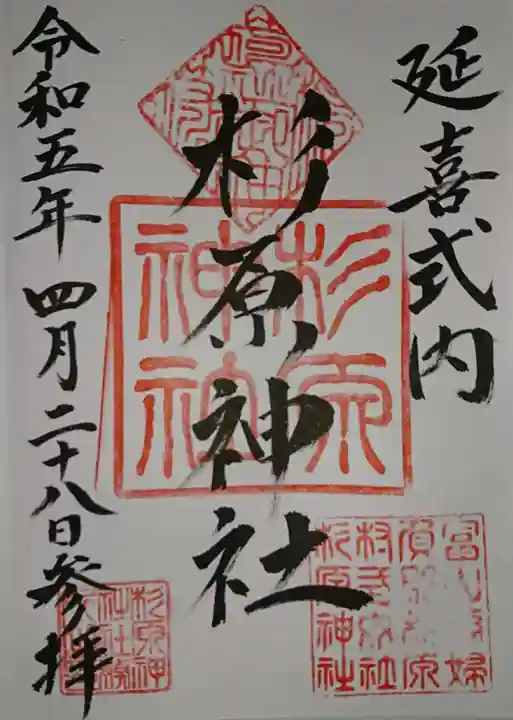 延喜式内
杉原神社
令和五年四月二十八日参拝
杉原
神社
杉原神社